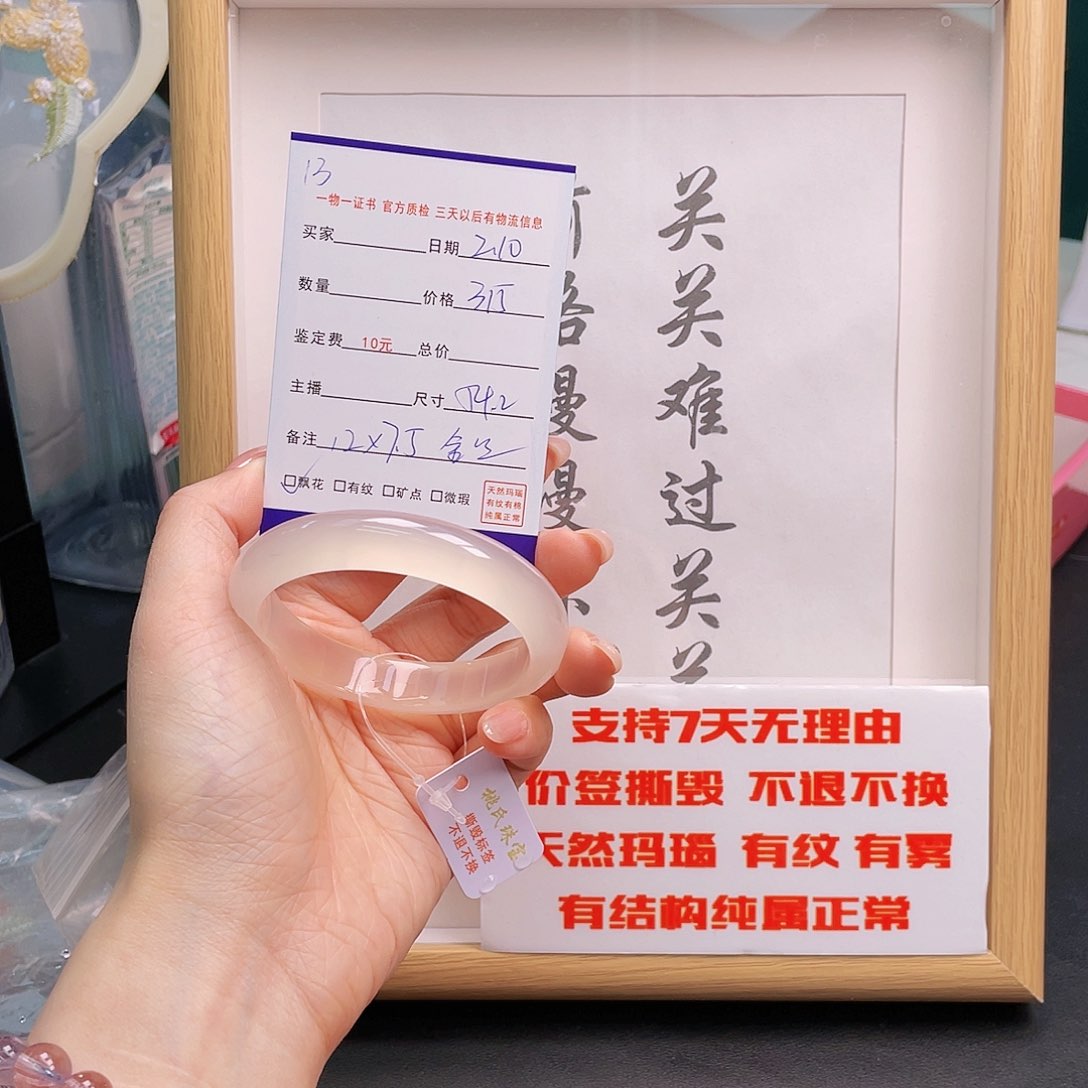 13
一物一证书 官方质检 三天以后有物流信息
买家 日期 2.10
数量 价格 315
鉴定费 10元 总价
主播 尺寸 54.2
备注 12×7.5
飘花 有纹 矿点 微瑕
天然玛瑙
有纹有棉
纯属正常
关关难过关关
慢慢
姚氏珠宝
撕毁标签
不退不换
支持7天无理由
价签撕毁 不退不换
天然玛瑙 有纹 有雾
有结构纯属正常